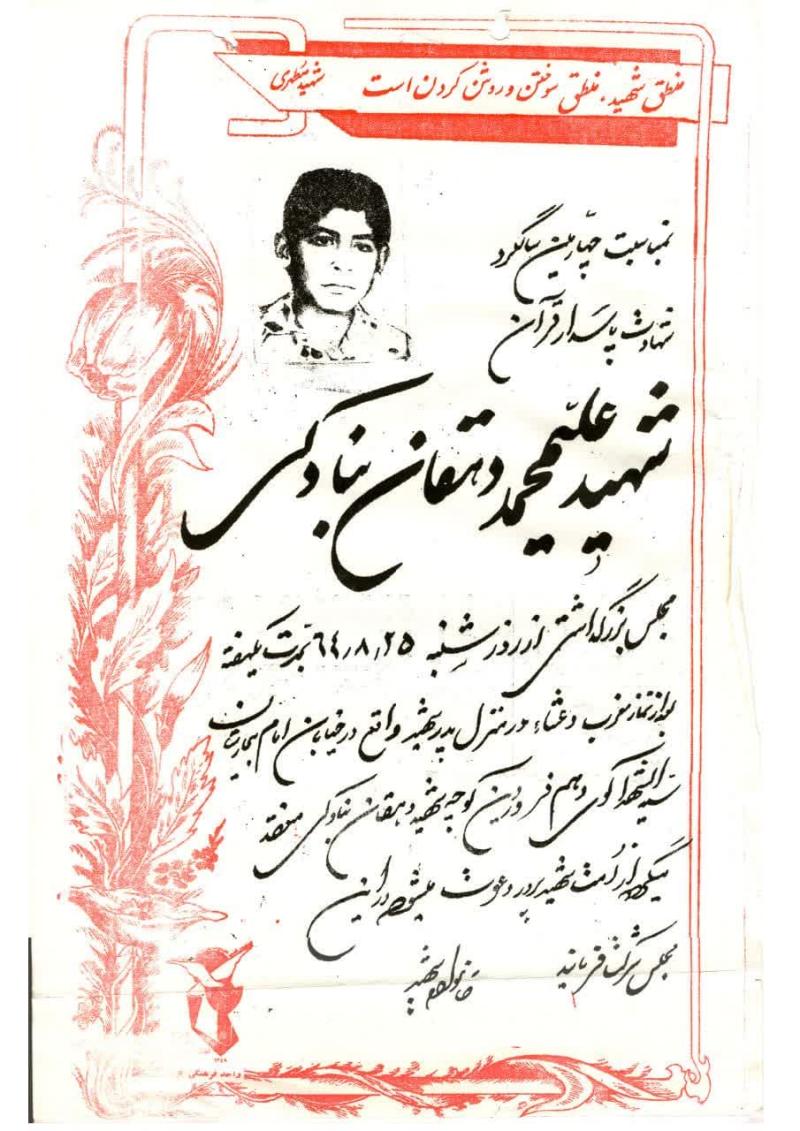 منطق شهید، منطق سوختن و روشن کردن است شهید مطهری
بمناسبت چهارمین سالگرد
شهادت پاسدار قرآن
شهید علیمحمد دهقان بنادکی
مجلس بزرگداشتی از روز شنبه ٦٤٫٨٫٢٥ بمدت یکهفته
بعد از نماز مغرب و عشاء در منزل پدر شهید واقع در خیابان امام بیمارستان
سیدالشهدا کوی دهم فروردین کوچه شهید دهقان بنادکی منعقد
میگردد از امت شهید پرور دعوت میشود در این
مجلس شرکت فرمایند خانواده شهید
واحد فرهنگی